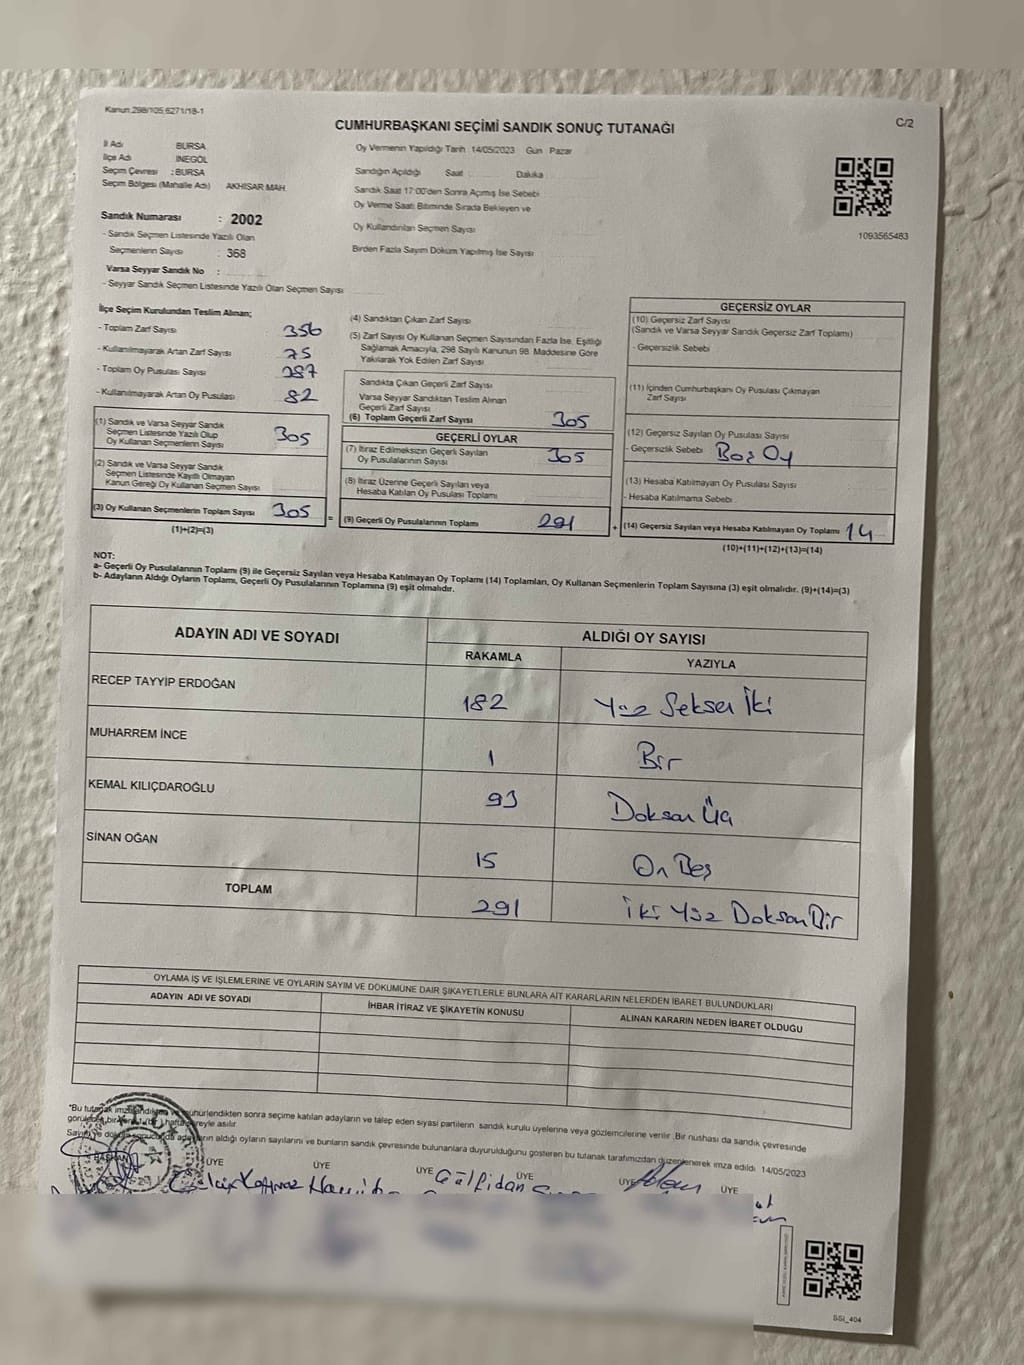 Kanun.298/105,6271/18-1
C/2
CUMHURBAŞKANI SEÇİMİ SANDIK SONUÇ TUTANAĞI
İl Adı BURSA
İlçe Adı İNEGÖL
Seçim Çevresi : BURSA
Seçim Bölgesi (Mahalle Adı) AKHİSAR MAH.
Sandık Numarası : 2002
- Sandık Seçmen Listesinde Yazılı Olan
Seçmenlerin Sayısı : 368
Varsa Seyyar Sandık No :
- Seyyar Sandık Seçmen Listesinde Yazılı Olan Seçmen Sayısı
Oy Vermenin Yapıldığı Tarih 14/05/2023 Gün Pazar
Sandığın Açıldığı Saat Dakika
Sandık Saat 17:00'den Sonra Açımış İse Sebebi
Oy Verme Saati Bitiminde Sırada Bekleyen ve
Oy Kullandırılan Seçmen Sayısı
Birden Fazla Sayım Döküm Yapılmış İse Sayısı
1093565483
İlçe Seçim Kurulundan Teslim Alınan;
- Toplam Zarf Sayısı 356
- Kullanılmayarak Artan Zarf Sayısı 75
- Toplam Oy Pusulası Sayısı 387
- Kullanılmayarak Artan Oy Pusulası 82
(1) Sandık ve Varsa Seyyar Sandık
Seçmen Listesinde Yazılı Olup
Oy Kullanan Seçmenlerin Sayısı 305
(2) Sandık ve Varsa Seyyar Sandık
Seçmen Listesinde Kayıtlı Olmayan
Kanun Gereği Oy Kullanan Seçmen Sayısı
(3) Oy Kullanan Seçmenlerin Toplam Sayısı 305
(1)+(2)=(3)
(4) Sandıktan Çıkan Zarf Sayısı
(5) Zarf Sayısı Oy Kullanan Seçmen Sayısından Fazla İse, Eşitliği
Sağlamak Amacıyla, 298 Sayılı Kanunun 98. Maddesine Göre
Yakılarak Yok Edilen Zarf Sayısı
Sandıkta Çıkan Geçerli Zarf Sayısı
Varsa Seyyar Sandıktan Teslim Alınan
Geçerli Zarf Sayısı
(6) Toplam Geçerli Zarf Sayısı 305
GEÇERLİ OYLAR
(7) İtiraz Edilmeksizin Geçerli Sayılan
Oy Pusulalarının Sayısı 305
(8) İtiraz Üzerine Geçerli Sayılan veya
Hesaba Katılan Oy Pusulası Toplamı
= (9) Geçerli Oy Pusulalarının Toplamı 291
GEÇERSİZ OYLAR
(10) Geçersiz Zarf Sayısı
(Sandık ve Varsa Seyyar Sandık Geçersiz Zarf Toplamı)
- Geçersizlik Sebebi
(11) İçinden Cumhurbaşkanı Oy Pusulası Çıkmayan
Zarf Sayısı
(12) Geçersiz Sayılan Oy Pusulası Sayısı
- Geçersizlik Sebebi Boş Oy
(13) Hesaba Katılmayan Oy Pusulası Sayısı
- Hesaba Katılmama Sebebi
+ (14) Geçersiz Sayılan veya Hesaba Katılmayan Oy Toplamı 14
(10)+(11)+(12)+(13)=(14)
NOT:
a- Geçerli Oy Pusulalarının Toplamı (9) ile Geçersiz Sayılan veya Hesaba Katılmayan Oy Toplamı (14) Toplamları, Oy Kullanan Seçmenlerin Toplam Sayısına (3) eşit olmalıdır. (9)+(14)=(3)
b- Adayların Aldığı Oyların Toplamı, Geçerli Oy Pusulalarının Toplamına (9) eşit olmalıdır.
ADAYIN ADI VE SOYADI ALDIĞI OY SAYISI
RAKAMLA YAZIYLA
RECEP TAYYİP ERDOĞAN 182 Yüz Seksen İki
MUHARREM İNCE 1 Bir
KEMAL KILIÇDAROĞLU 93 Doksan Üç
SİNAN OĞAN 15 On Beş
TOPLAM 291 İki Yüz Doksan Bir
OYLAMA İŞ VE İŞLEMLERİNE VE OYLARIN SAYIM VE DÖKÜMÜNE DAİR ŞİKAYETLERLE BUNLARA AİT KARARLARIN NELERDEN İBARET BULUNDUKLARI
ADAYIN ADI VE SOYADI İHBAR İTİRAZ VE ŞİKAYETİN KONUSU ALINAN KARARIN NEDEN İBARET OLDUĞU
*Bu tutanak imzalandıktan ve mühürlendikten sonra seçime katılan adayların ve talep eden siyasi partilerin sandık kurulu üyelerine veya gözlemcilerine verilir. Bir nüshası da sandık çevresinde
asılır.
adayların aldığı oyların sayılarını ve bunların sandık çevresinde bulunanlara duyurulduğunu gösteren bu tutanak tarafımızdan düzenlenerek imza edildi. 14/05/2023
BAŞKAN ÜYE ÜYE ÜYE ÜYE ÜYE ÜYE
Gülfidan
SSİ_404